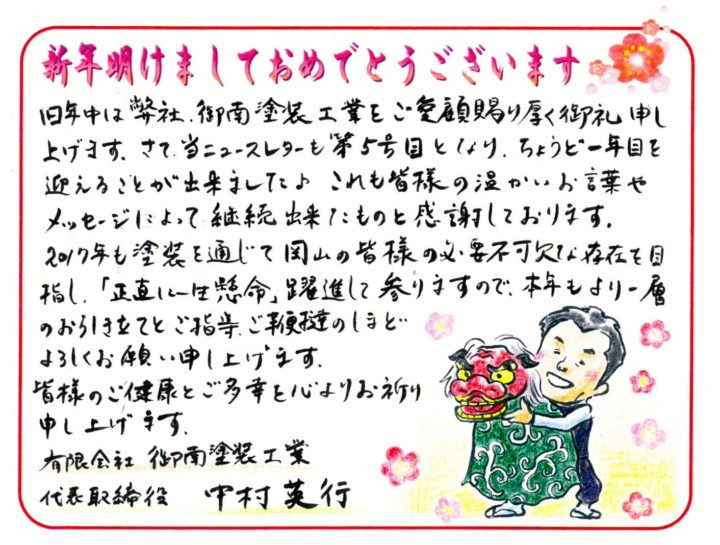 新年明けましておめでとうございます
旧年中は弊社、御南塗装工業をご愛顧賜り厚く御礼申し
上げます。さて、当ニュースレターも第5号目となり、ちょうど一年目を
迎えることが出来ました♪ これも皆様の温かいお言葉や
メッセージによって継続出来たものと感謝しております。
2017年も塗装を通じて岡山の皆様の必要不可欠な存在を目
指し、「正直に一生懸命」躍進して参りますので、本年もより一層
のお引き立てとご指導、ご鞭撻のほど
よろしくお願い申し上げます。
皆様のご健康とご多幸を心よりお祈り
申し上げます。
有限会社 御南塗装工業
代表取締役 中村英行